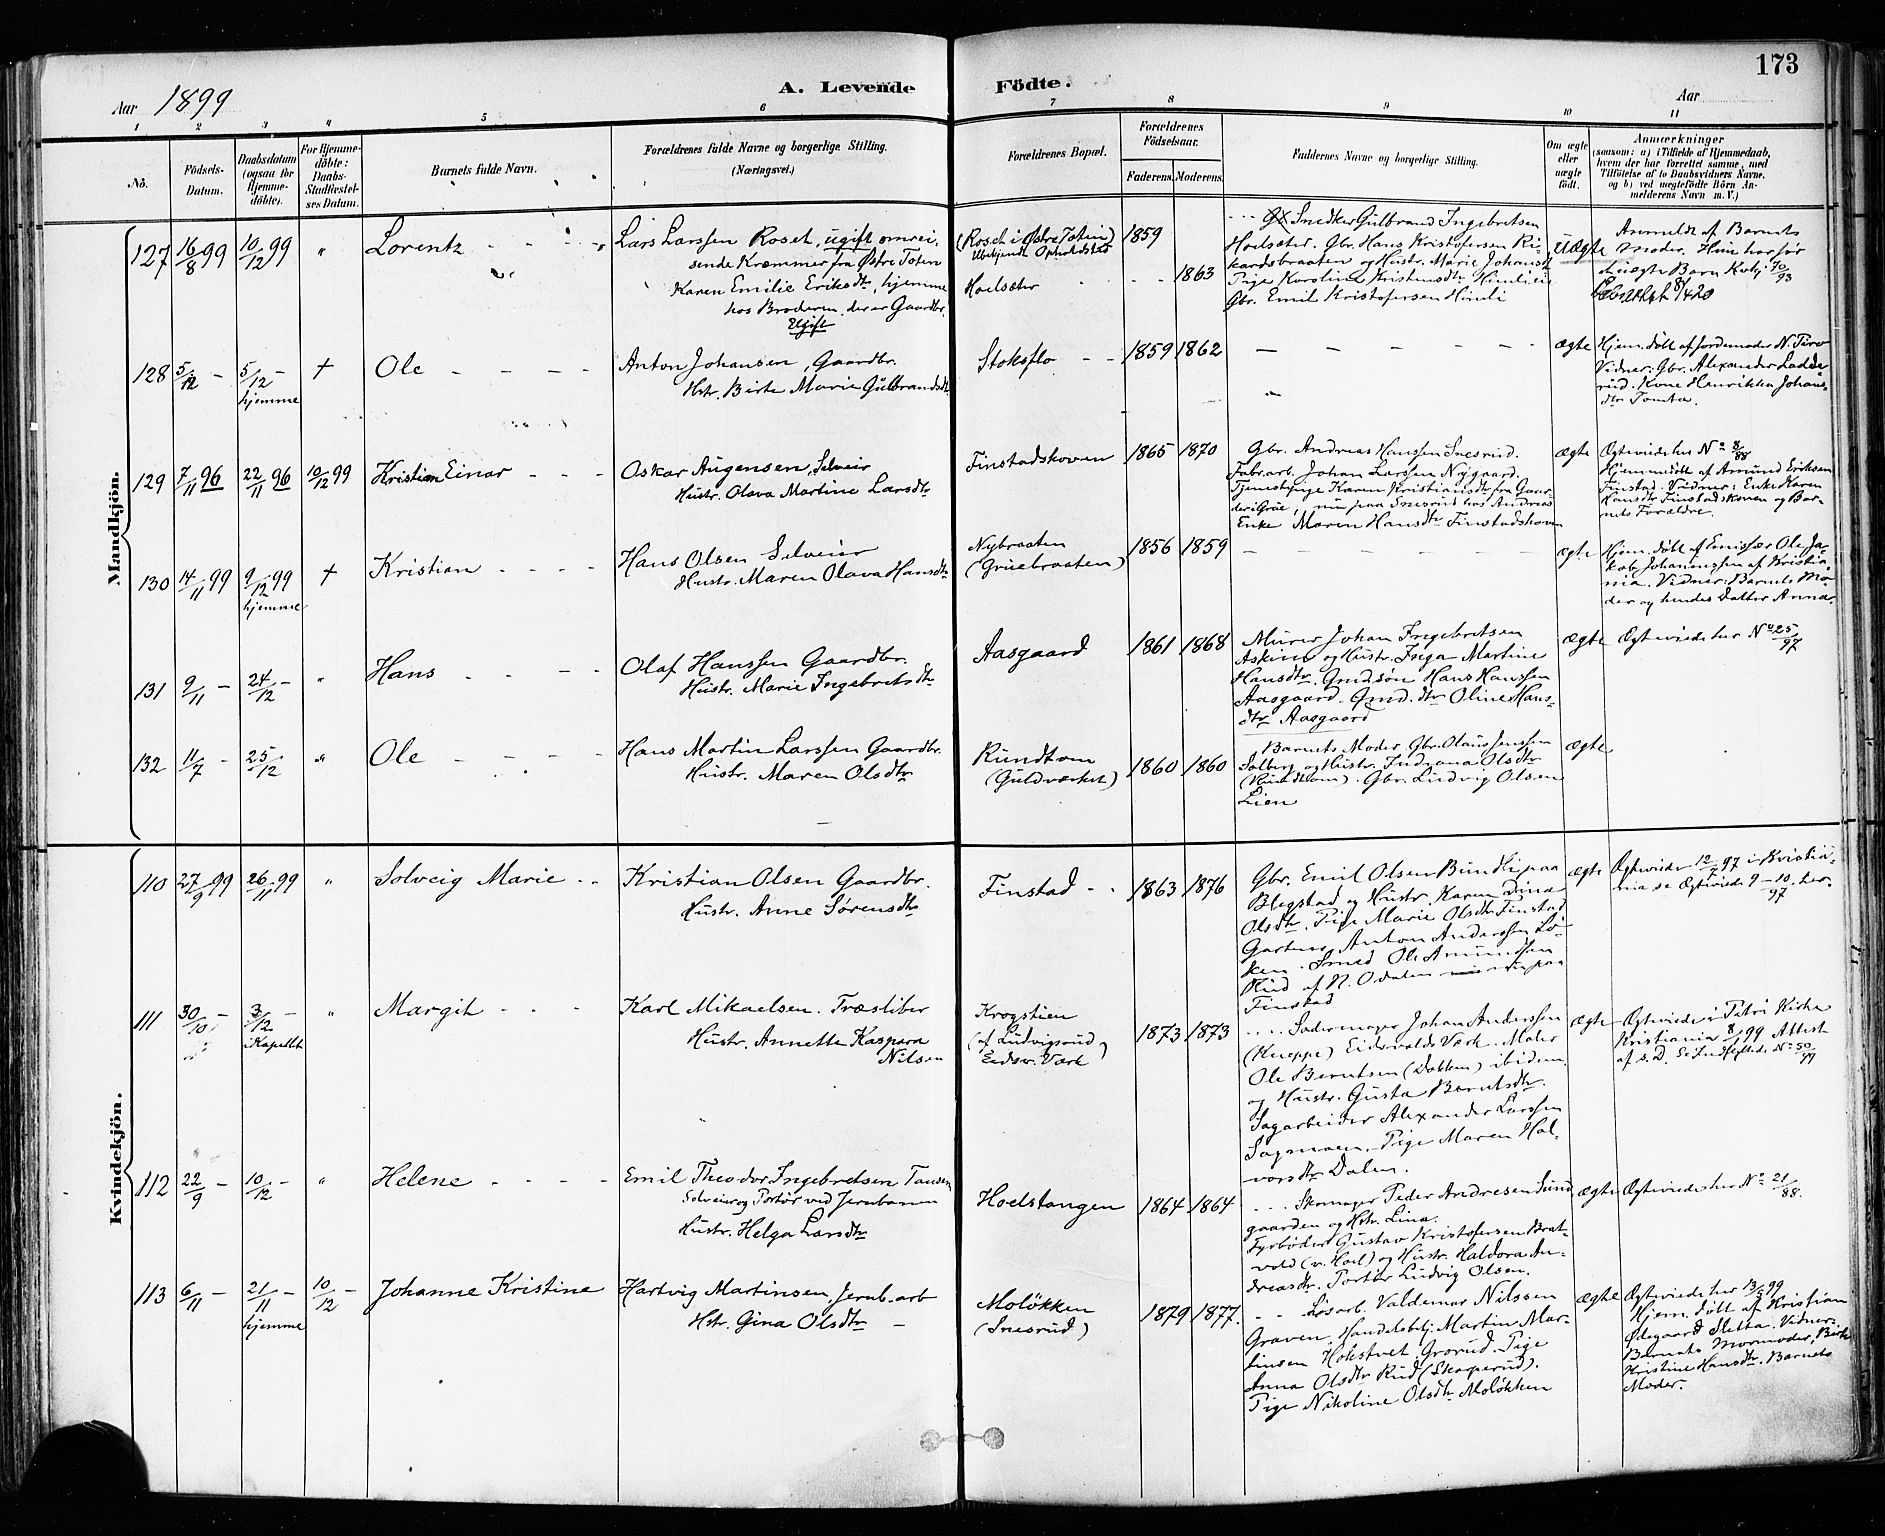 173
Aar 1899
A. Levende Födte.
Aar
1 2 3 4 5 6 7 8 9 10 11
No.
Födsels-Datum.
Daabsdatum (ogsaa for Hjemme-döbte).
For Hjemme-döbte: Daabs-Stadfæstel-ses Datum.
Barnets fulde Navn.
Forældrenes fulde Navne og borgerlige Stilling. (Næringsvei.)
Forældrenes Bopæl.
Forældrenes Födselsaar.
Faderens. Moderens.
Faddernes Navne og borgerlige Stilling.
Om ægte eller uægte födt.
Anmærkninger
(saasom: a) i Tilfælde af Hjemmedaab, hvem der har forrettet samme, med Tilföielse af to Daabsvidners Navne, og b) ved uægtefödte Börn Anmelderens Navn m. V.)
Mandkjön.
127 16/8 99 10/12 99 " Lorentz
Lars Larssen Roset, ugift omrei-
sende Kræmmer fra Østre Toten
Karen Emilie Eriksdtr, hjemme
hos Broderen, der er Gaardbr.
Ugift
(Roset i Østre Toten)
Ubekjendt Opholdsted
Hoelsæter
1859 1863
Snedker Gulbrand Ingebretsen
Hoelsæter. Gbr. Hans Kristofersen Ri-
kardsbraaten og Hustr. Marie Johansdtr
Pige Karoline Kristensdtr Himlieie
Gbr. Emil Kristofersen Himli
Uægte
Anmeldt af Barnets
Moder. Hun har før
1 uægte Barn Kvkj. 70/93
128 5/12 - 5/12 - hjemme + Ole
Anton Johansen, Gaardbr.
Hstr. Birte Marie Gulbrandsdtr
Stoksflo
1859 1862
ægte
Hjem. døbt af Jordemoder N. Turo
Vidner: Gbr. Alexander Ladde-
rud. Kone Henrikka Johans-
dtr Tomta.
129 7/11 96 22/11 96 10/12 99 Kristian Einar
Oskar Augensen, Selveir
Hustr. Olava Martine Larsdtr
Finstadskoven
1865 1870
Gbr. Andreas Hanssen Snesrud.
Fabr.arb. Johan Larssen Nygaard.
Tjenestepige Karen Kristiansdtr fra Gaar-
der i Grue, nu paa Snesrud hos Andreas
Enke Maren Hansdtr Finstadskoven
ægte
Ægteviede her No 8/88
Hjemmedøbt af Amund Eriksen
Finstad. Vidner: Enke Karen
Hansdtr Finstadskoven og Bar-
nets Forældre.
130 14/11 99 9/12 99 hjemme + Kristian
Hans Olsen Selveier
Hustr. Maren Olava Hansdtr
Nybraaten
(Gruebraaten)
1856 1859
ægte
Hjem. døbt af Emissær Ole Ja-
kob Johannssen af Kristia-
nia. Vidner: Barnets Mo-
der og hendes Datter Anna.
131 9/11 - 24/12 - " Hans
Olaf Hanssen Gaardbr.
Hustr. Marie Ingebretsdtr
Aasgaard
1861 1868
Murer Johan Ingebretsen
Askim og Hustr. Inga Martine
Hansdtr. Gmd.søn Hans Hanssen
Aasgaard. Gmd. dtr Oline Hans-
dtr Aasgaard
ægte
Ægteviede her No 25/97
132 11/7 - 25/12 " Ole
Hans Martin Larssen Gaardbr.
Hustr. Maren Olsdtr
Rundtom
(Guldværket)
1860 1860
Barnets Moder. Gbr. Olaus Jenssen
Solberg og Hustr. Indiana Olsdtr
(Rundtom). Gbr. Ludvig Olsen
Lien
ægte
Kvindekjön.
110 27/9 99 26/11 99 " Solveig Marie
Kristian Olsen Gaardbr.
Hustr. Anne Sørensdtr
Finstad
1863 1876
Gbr. Emil Olsen Bundli paa
Blegstad og Hustr. Karen Dina
Olsdtr. Pige Marie Olsdtr Finstad
Gartner Anton Anderssen Lø-
ken. Smed Ole Amundsen
Rud af N. Odalen nu paa
Finstad
ægte
Ægteviede 12/7 97 i Kristia-
nia se Ægteviede 9-10/97 her.
111 30/10 - 3/12 - i Kapellet " Margit
Karl Mikaelsen. Træsliber
Hustr. Annette Kaspara
Nilsen
Krogstien
(af Ludvigsrud)
Eidsv. Værk
1873 1873
Sadermager Johan Anderssen
(Hueppe) Eidsvolds Værk. Maler
Ole Berntsen (Dokken) ibidem
og Hustr. Gusta Berntsdtr.
Sagarbeider Alexander Larssen
Sagmoen. Pige Maren Hal-
vorsdtr Dalen.
ægte
Ægteviede i Petri Kirke
Kristiania 8/1 99 Attest
af s. D. Se Indflyttede No 50/99
112 22/9 - 10/12 - " Helene
Emil Theodor Ingebretsen Tansem
Selveier og Portør ved Jernbanen
Hustr. Helga Larsdtr
Hoelstangen
1864 1864
Skomager Peder Andresen Sund-
gaarden og Hstr. Lina.
Fyrbøder Gustav Kristofersen Brat-
vold (v. Hoel) og Hustr. Haldora An-
dreasdtr. Portør Ludvig Olsen.
ægte
Ægteviede her No 21/88.
113 6/11 - 21/11 - hjemme 10/12 - Johanne Kristine
Hartvig Martinsen, Jernb. arb
Hstr. Gina Olsdtr
Moløkken
(Snesrud)
1879 1877.
Løsarb. Valdemar Nilssen
Graven. Handelsbtj. Martin Mar-
tinsen Hokstvet, Grorud. Pige
Anna Olsdtr Rud (Skaperud).
Pige Nikoline Olsdtr Moløkken
ægte
Ægteviede her 13/99
Hjem. døbt af Kristian
Ødegaard Sletta. Vidner
Barnets Mormoder, Birte
Kristine Hansdtr. Barnets
Moder.